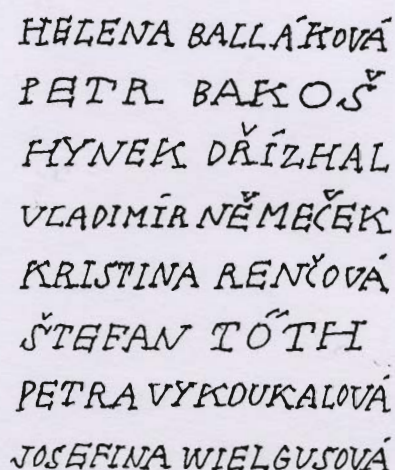 HELENA BALLÁKOVÁ
PETR BAKOŠ
HYNEK DŘÍZHAL
VLADIMÍR NĚMEČEK
KRISTINA RENČOVÁ
ŠTEFAN TÓTH
PETRA VYKOUKALOVÁ
JOSEFINA WIELGUSOVÁ